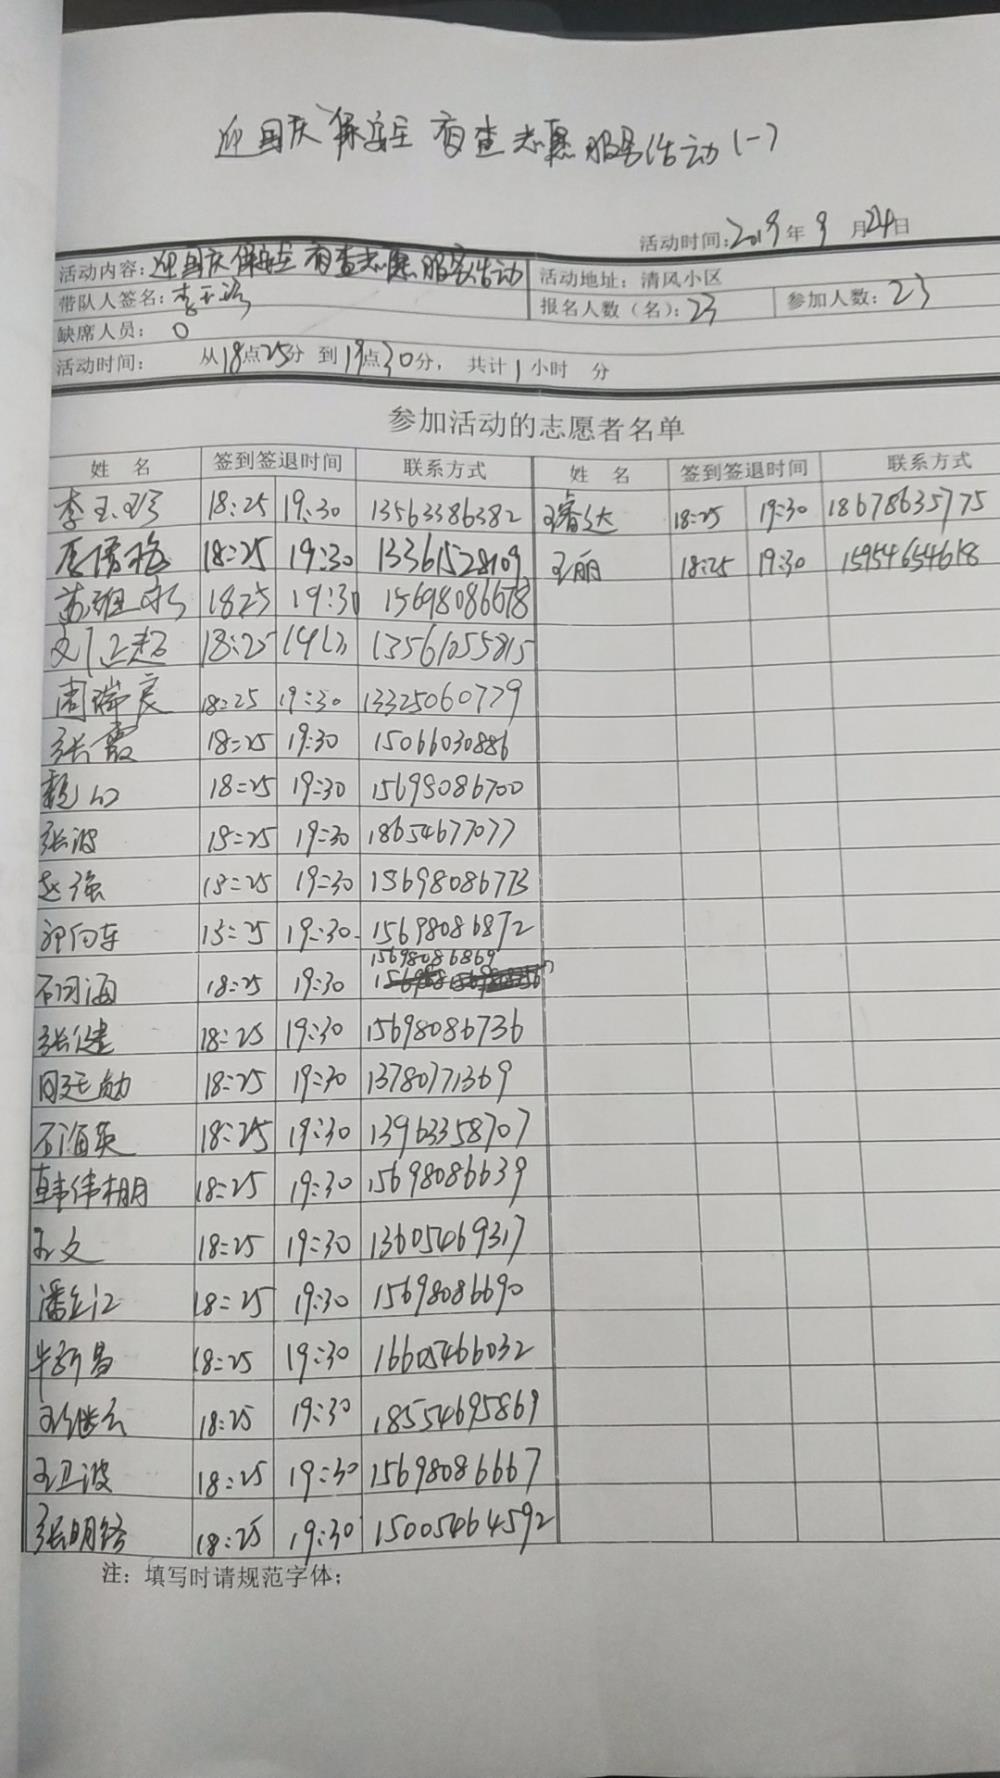 迎国庆 保安全 夜查志愿服务活动(一)
活动时间:2019年9月24日
活动内容:迎国庆 保安全 夜查志愿服务活动 活动地址:清风小区
带队人签名: 报名人数(名):23 参加人数:23
缺席人员: 0
活动时间: 从18点25分 到19点30分, 共计1小时 分
参加活动的志愿者名单
姓 名 签到签退时间 联系方式 姓 名 签到签退时间 联系方式
18:25 19:30 13563386382 18:25 19:30 18678635775
18:25 19:30 13361528109 王丽 18:25 19:30 15954654618
1825 19:30 15698086678
18:25 13561055815
周瑞良 18:25 19:30 13325060779
张霞 18:25 19:30 15066030886
18:25 19:30 15698086700
张波 18:25 19:30 18654677077
赵强 18:25 19:30 15698086773
18:25 19:30 15698086872
18:25 19:30 15698086869
张健 18:25 19:30 15698086736
18:25 19:30 13780771369
石海英 18:25 19:30 13963358707
韩伟朋 18:25 19:30 15698086639
王文 18:25 19:30 13605469317
18:25 19:30 15698086690
18:25 19:30 16605466032
王继云 18:25 19:30 18554695869
王卫波 18:25 19:30 15698086667
张明经 18:25 19:30 15005464592
注: 填写时请规范字体;